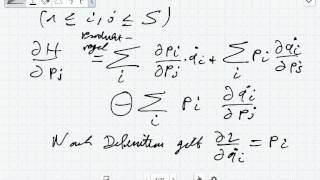 (1 ≤ i, j ≤ S)
Produkt-
regel
∂H/∂Pj = ∑i ∂pi/∂Pj · q̇i + ∑i Pi ∂q̇i/∂Pj
⊖ ∑i Pi ∂q̇i/∂Pj
Nach Definition gilt ∂L/∂q̇i = Pi